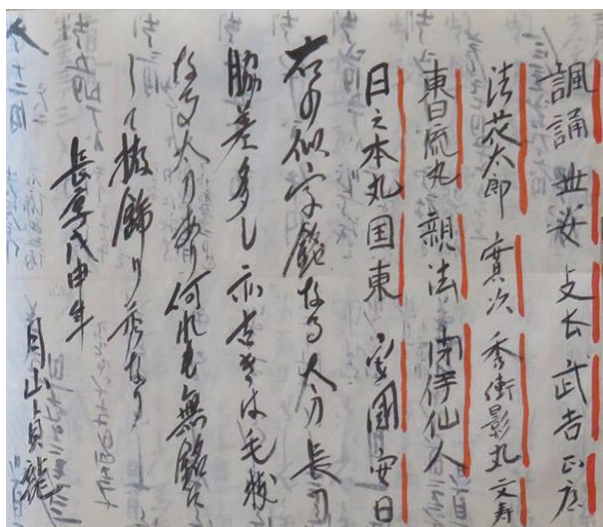 諷誦 世安 友長 武吉 正应
法花太郎 實次 秀衡 影丸 文寿
東日流丸 親法 閉伊仙人
日之本丸 国東 宝国 安日
右の似字銘なる太刀長刀
脇差多し 亦古きは毛抜
なる太刀あり何れも無銘に
して拔飾り産なり
長享戊申年
月山貞龍